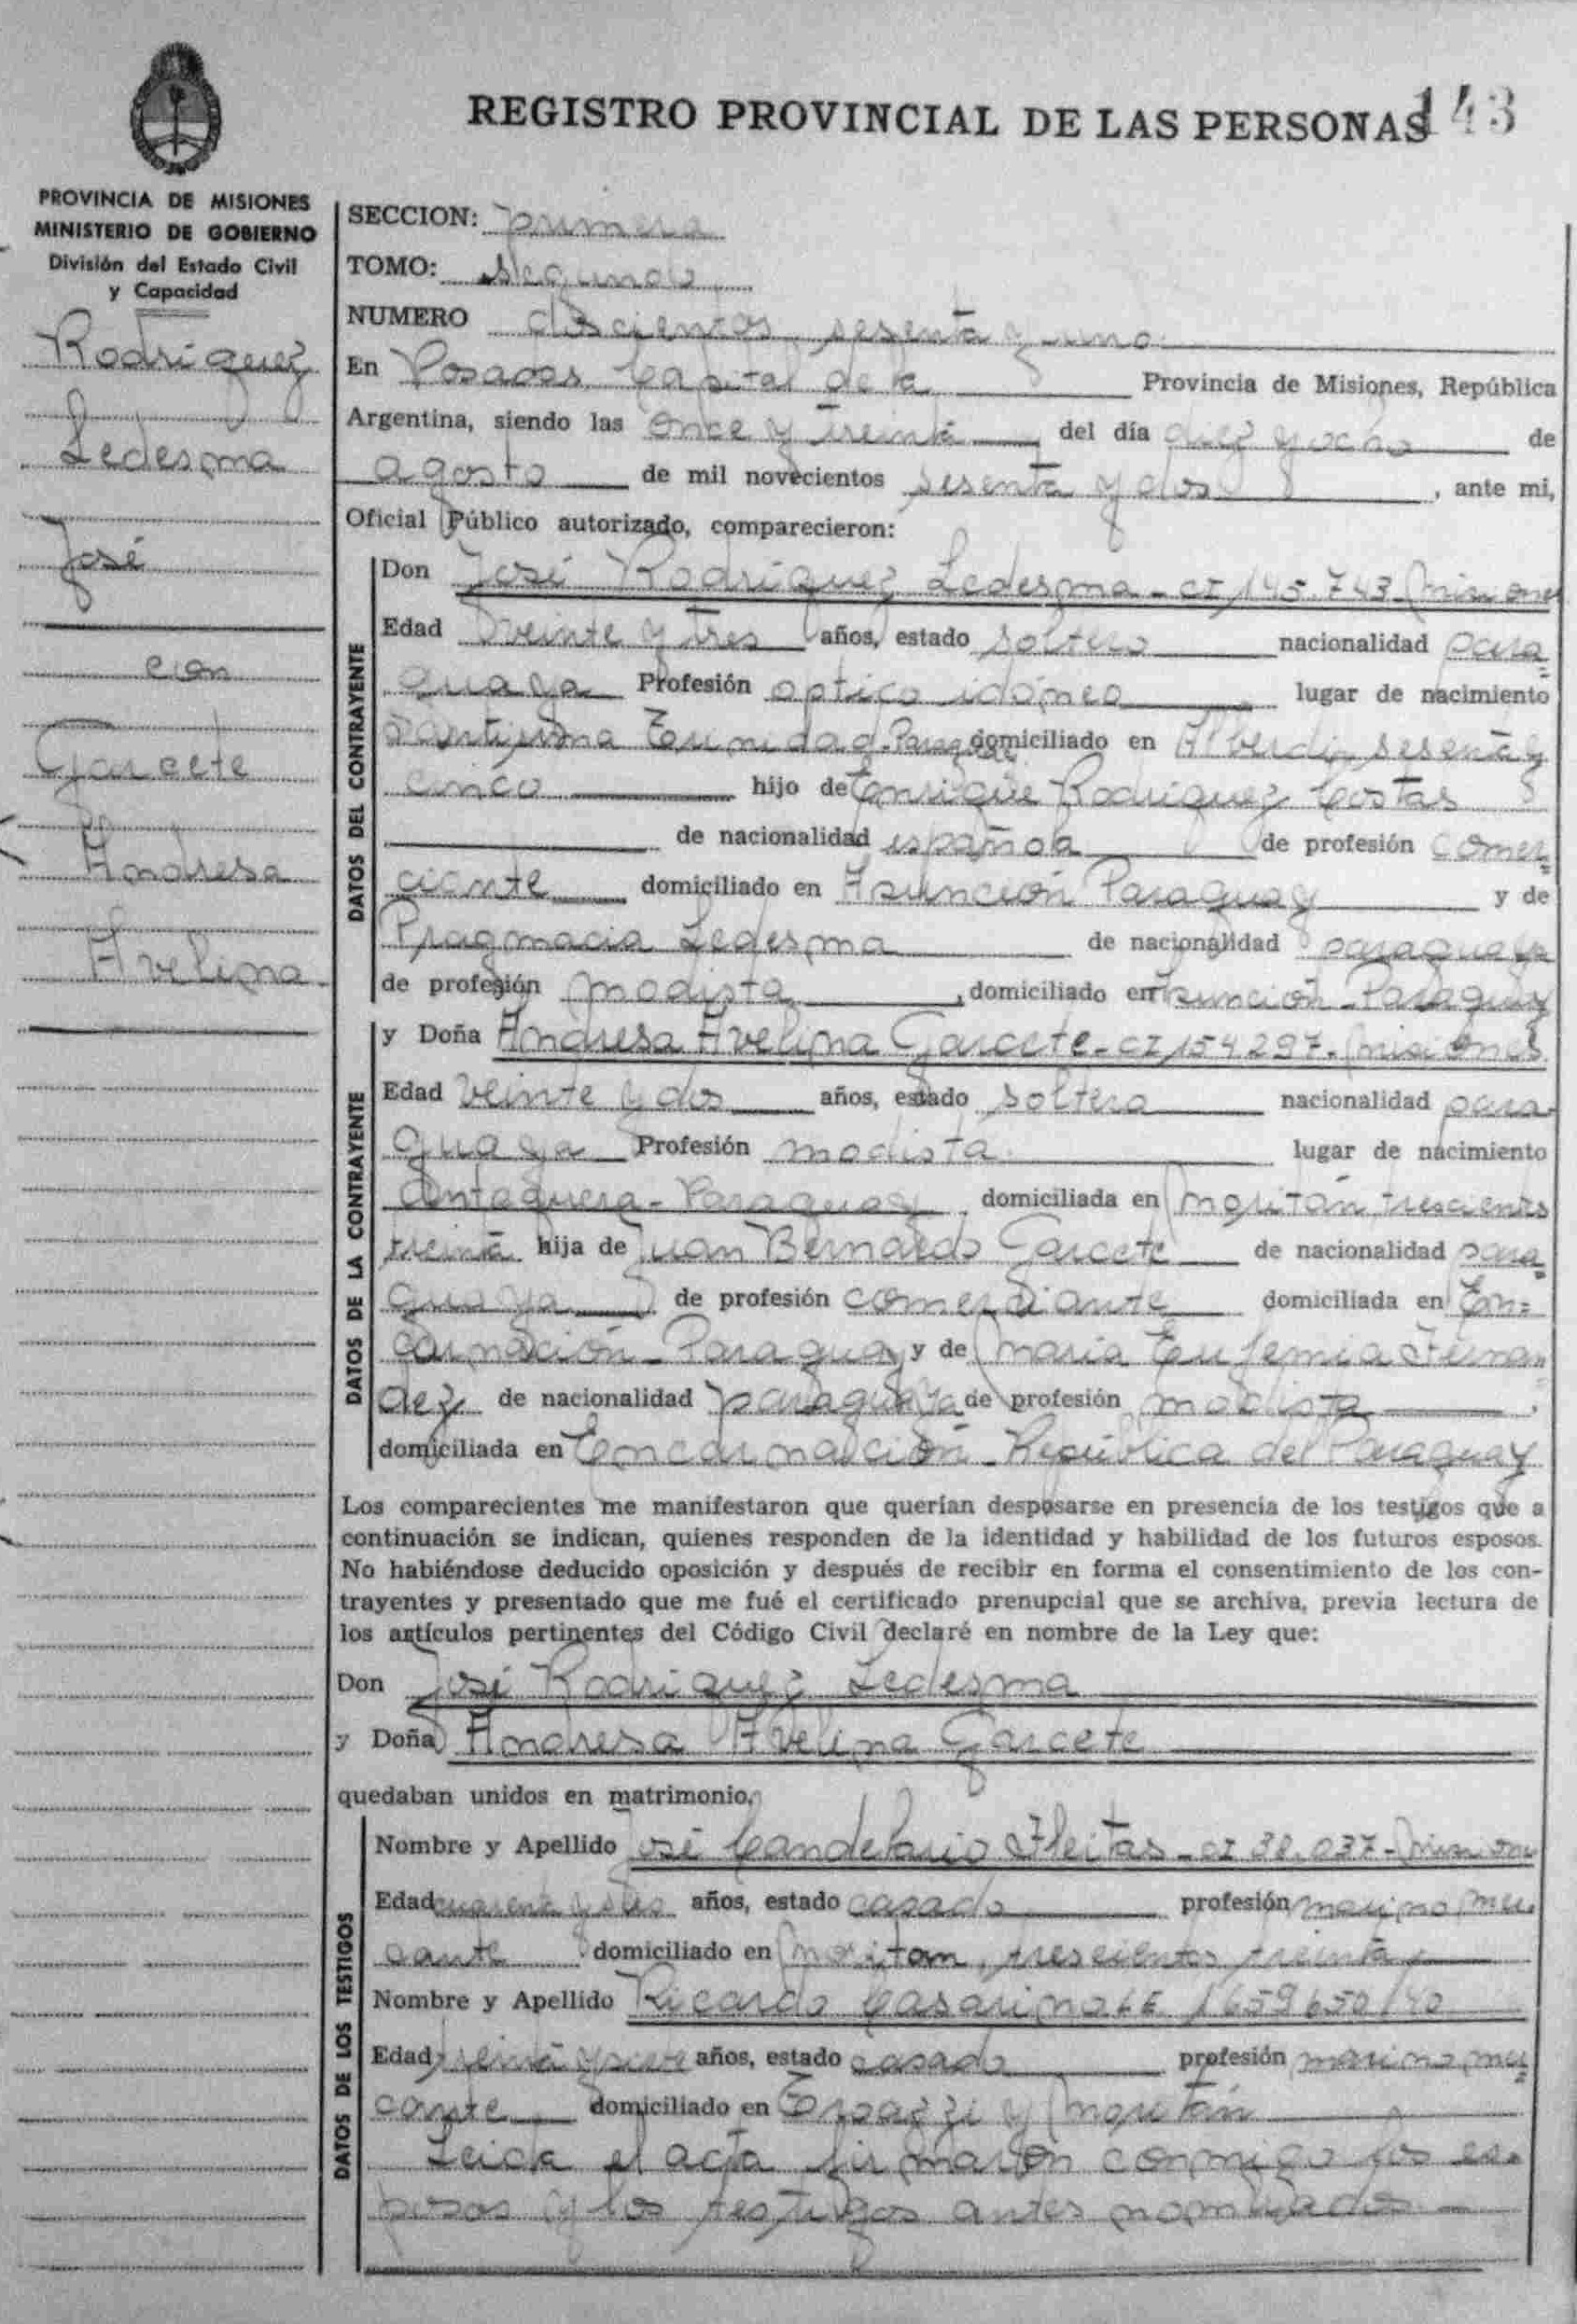 REGISTRO PROVINCIAL DE LAS PERSONAS 143
PROVINCIA DE MISIONES
MINISTERIO DE GOBIERNO
División del Estado Civil
y Capacidad
Rodriguez
Ledesma
José
con
Garcete
Andresa
Avelina
SECCION: primera
TOMO: segundo
NUMERO doscientos sesenta y uno
En Posadas Capital de la Provincia de Misiones, República
Argentina, siendo las once y treinta del día diez y ocho de
agosto de mil novecientos sesenta y dos, ante mi,
Oficial Público autorizado, comparecieron:
DATOS DEL CONTRAYENTE
Don José Rodriguez Ledesma - CI 145.743 - Misiones
Edad veinte y tres años, estado soltero nacionalidad para
guaya Profesión optico idóneo lugar de nacimiento
Santisima Trinidad - Paraguay domiciliado en Alberdi sesenta y
cinco hijo de Enrique Rodriguez Costas
de nacionalidad española de profesión comer
ciante domiciliado en Asunción Paraguay y de
Pragmacia Ledesma de nacionalidad paraguaya
de profesión modista, domiciliado en Asunción - Paraguay
DATOS DE LA CONTRAYENTE
y Doña Andresa Avelina Garcete - CI 154297 - Misiones
Edad veinte y dos años, estado soltera nacionalidad para
guaya Profesión modista. lugar de nacimiento
Antequera - Paraguay, domiciliada en trescientos
treinta hija de Juan Bernardo Garcete de nacionalidad para
guaya de profesión comerciante domiciliada en En=
carnación - Paraguay y de Maria Eufemia Fernan
dez de nacionalidad paraguaya de profesión modista,
domiciliada en Encarnación - República del Paraguay
Los comparecientes me manifestaron que querían desposarse en presencia de los testigos que a
continuación se indican, quienes responden de la identidad y habilidad de los futuros esposos.
No habiéndose deducido oposición y después de recibir en forma el consentimiento de los con-
trayentes y presentado que me fué el certificado prenupcial que se archiva, previa lectura de
los artículos pertinentes del Código Civil declaré en nombre de la Ley que:
Don José Rodriguez Ledesma
y Doña Andresa Avelina Garcete
quedaban unidos en matrimonio.
DATOS DE LOS TESTIGOS
Nombre y Apellido José Candelario Fleitas - CI 38.037 - Misiones
Edad cuarenta y seis años, estado casado profesión marino mer
cante domiciliado en trescientos treinta
Nombre y Apellido Ricardo Casarino LE 1659650
Edad treinta y siete años, estado casado profesión marino mer
cante domiciliado en y
Leida el acta firmaron conmigo los es=
posos y los testigos antes nombrados -